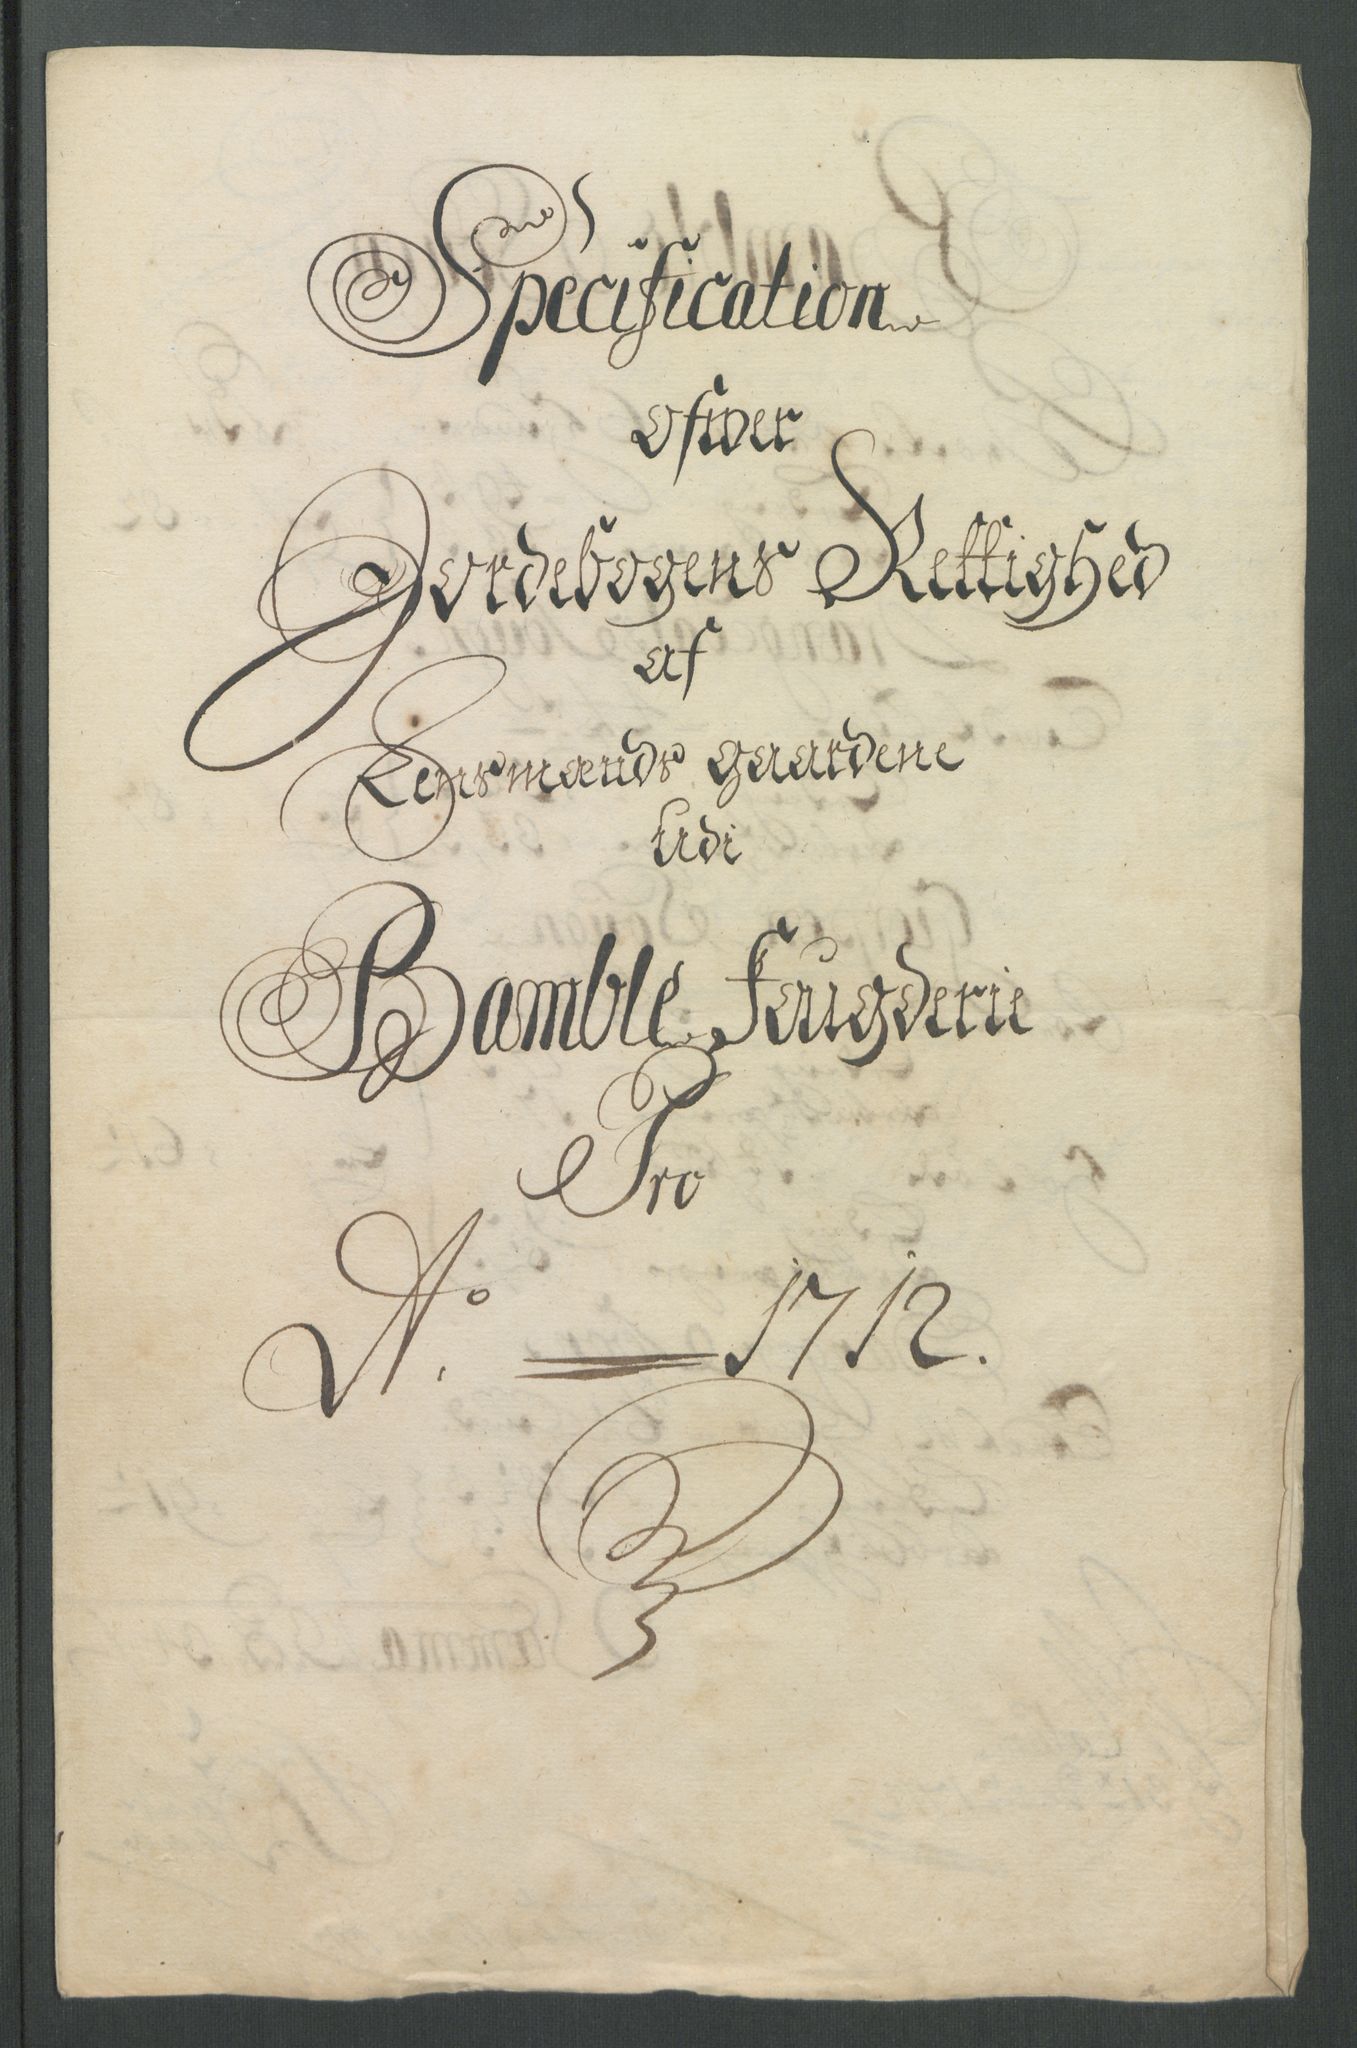 Specification
ofwer
Jordebogens Rettighed
af
Lensmands gaardene
udi
Bamble Faugderie
Pro
Ao. 1712.